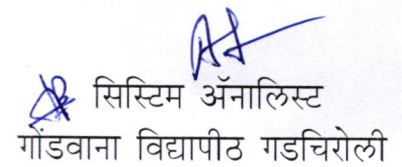 सिस्टिम ॲनालिस्ट
गोंडवाना विद्यापीठ गडचिरोली